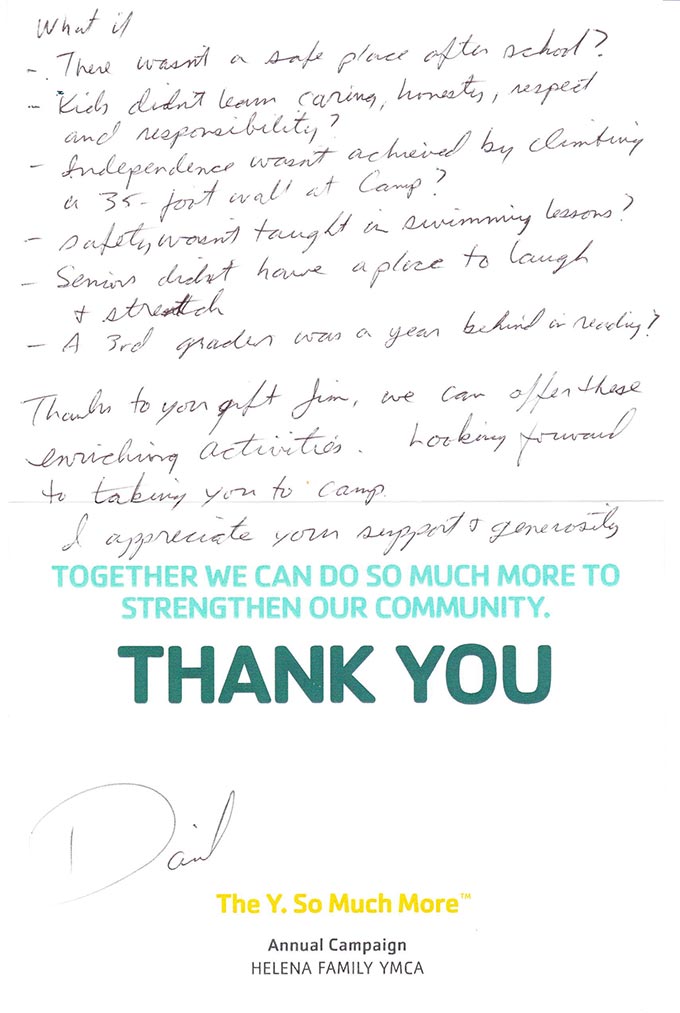 What if
- There wasn't a safe place after school?
- Kids didn't learn caring, honesty, respect
and responsibility?
- Independence wasn't achieved by climbing
a 35-foot wall at Camp?
- Safety wasn't taught in swimming lessons?
- Seniors didn't have a place to laugh
& stretch
- A 3rd grader was a year behind in reading?
Thanks to your gift Jim, we can offer these
enriching activities. Looking forward
to taking you to camp.
I appreciate your support & generosity
TOGETHER WE CAN DO SO MUCH MORE TO
STRENGTHEN OUR COMMUNITY.
THANK YOU
The Y. So Much More™
Annual Campaign
HELENA FAMILY YMCA